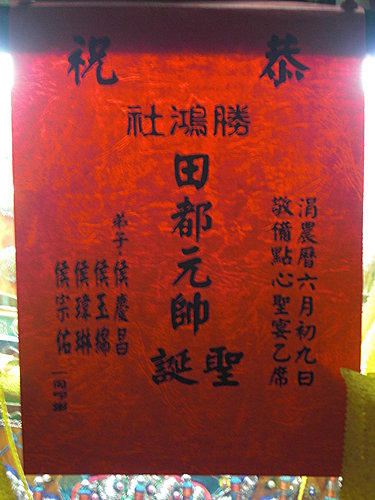 恭祝
勝鴻社
田都元帥
聖誕
涓農曆六月初九日
敬備點心聖宴乙席
弟子侯慶昌
侯玉綿
侯瑋琳
侯宗佑
一同叩謝